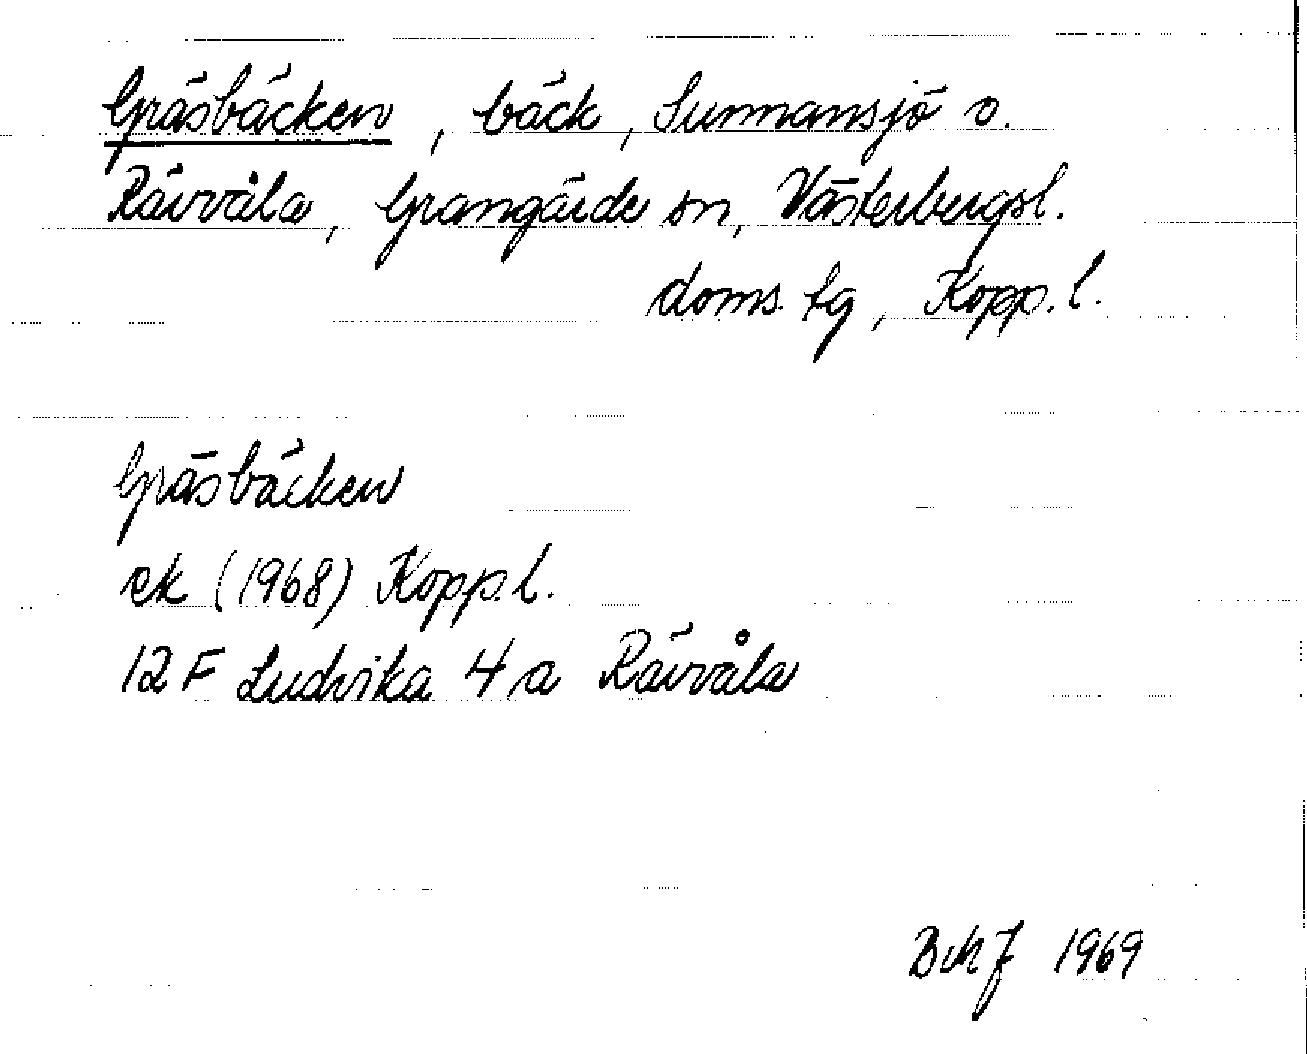 Gräsbäcken, bäck, Sunnansjö o.
Rävvåla, Grangärde sn, Västerbergsl.
doms. lg, Kopp. l.
Gräsbäcken
ek (1968) Kopp. l.
12 F Ludvika 4 a Rävvåla
1969